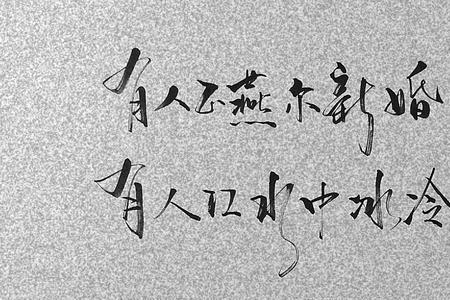 有人正燕尔新婚
有人江水中冰冷